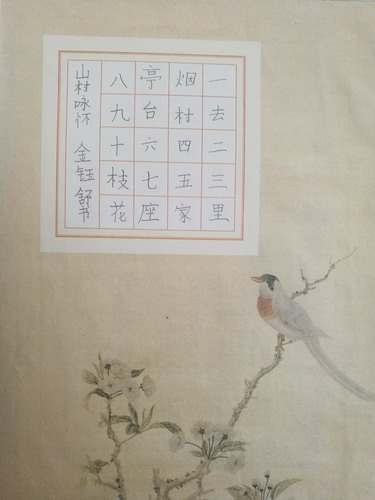 一去二三里
烟村四五家
亭台六七座
八九十枝花
山村咏怀 金钰舒书